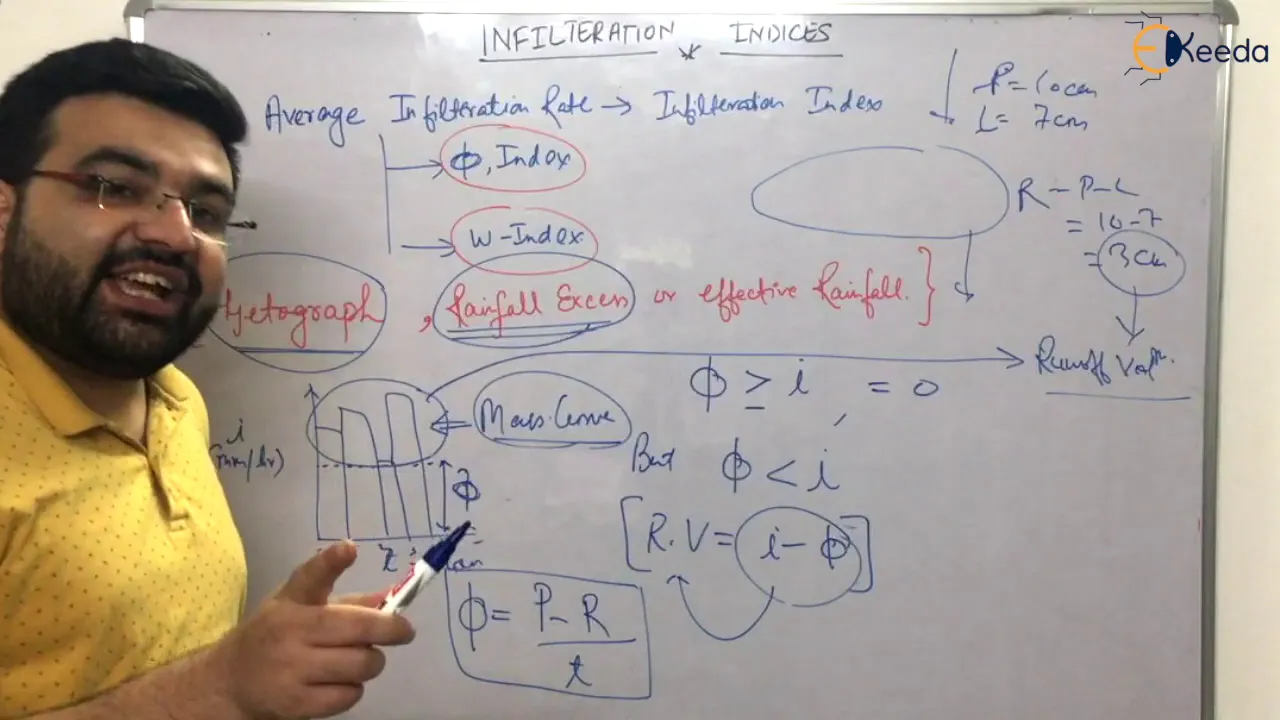 INFILTERATION INDICES
EKeeda
Average Infilteration Rate → Infilteration Index
P = 10cm
L = 7cm
ϕ, Index
W-Index
R - P - L
= 10-7
= 3cm
Hetograph, Rainfall Excess or effective Rainfall. }
Runoff Vol^m.
ϕ ≥ i = 0
Mass Curve
i
(mm/hr)
But ϕ < i
ϕ
[R.V = i - ϕ]
ϕ = P - R / t